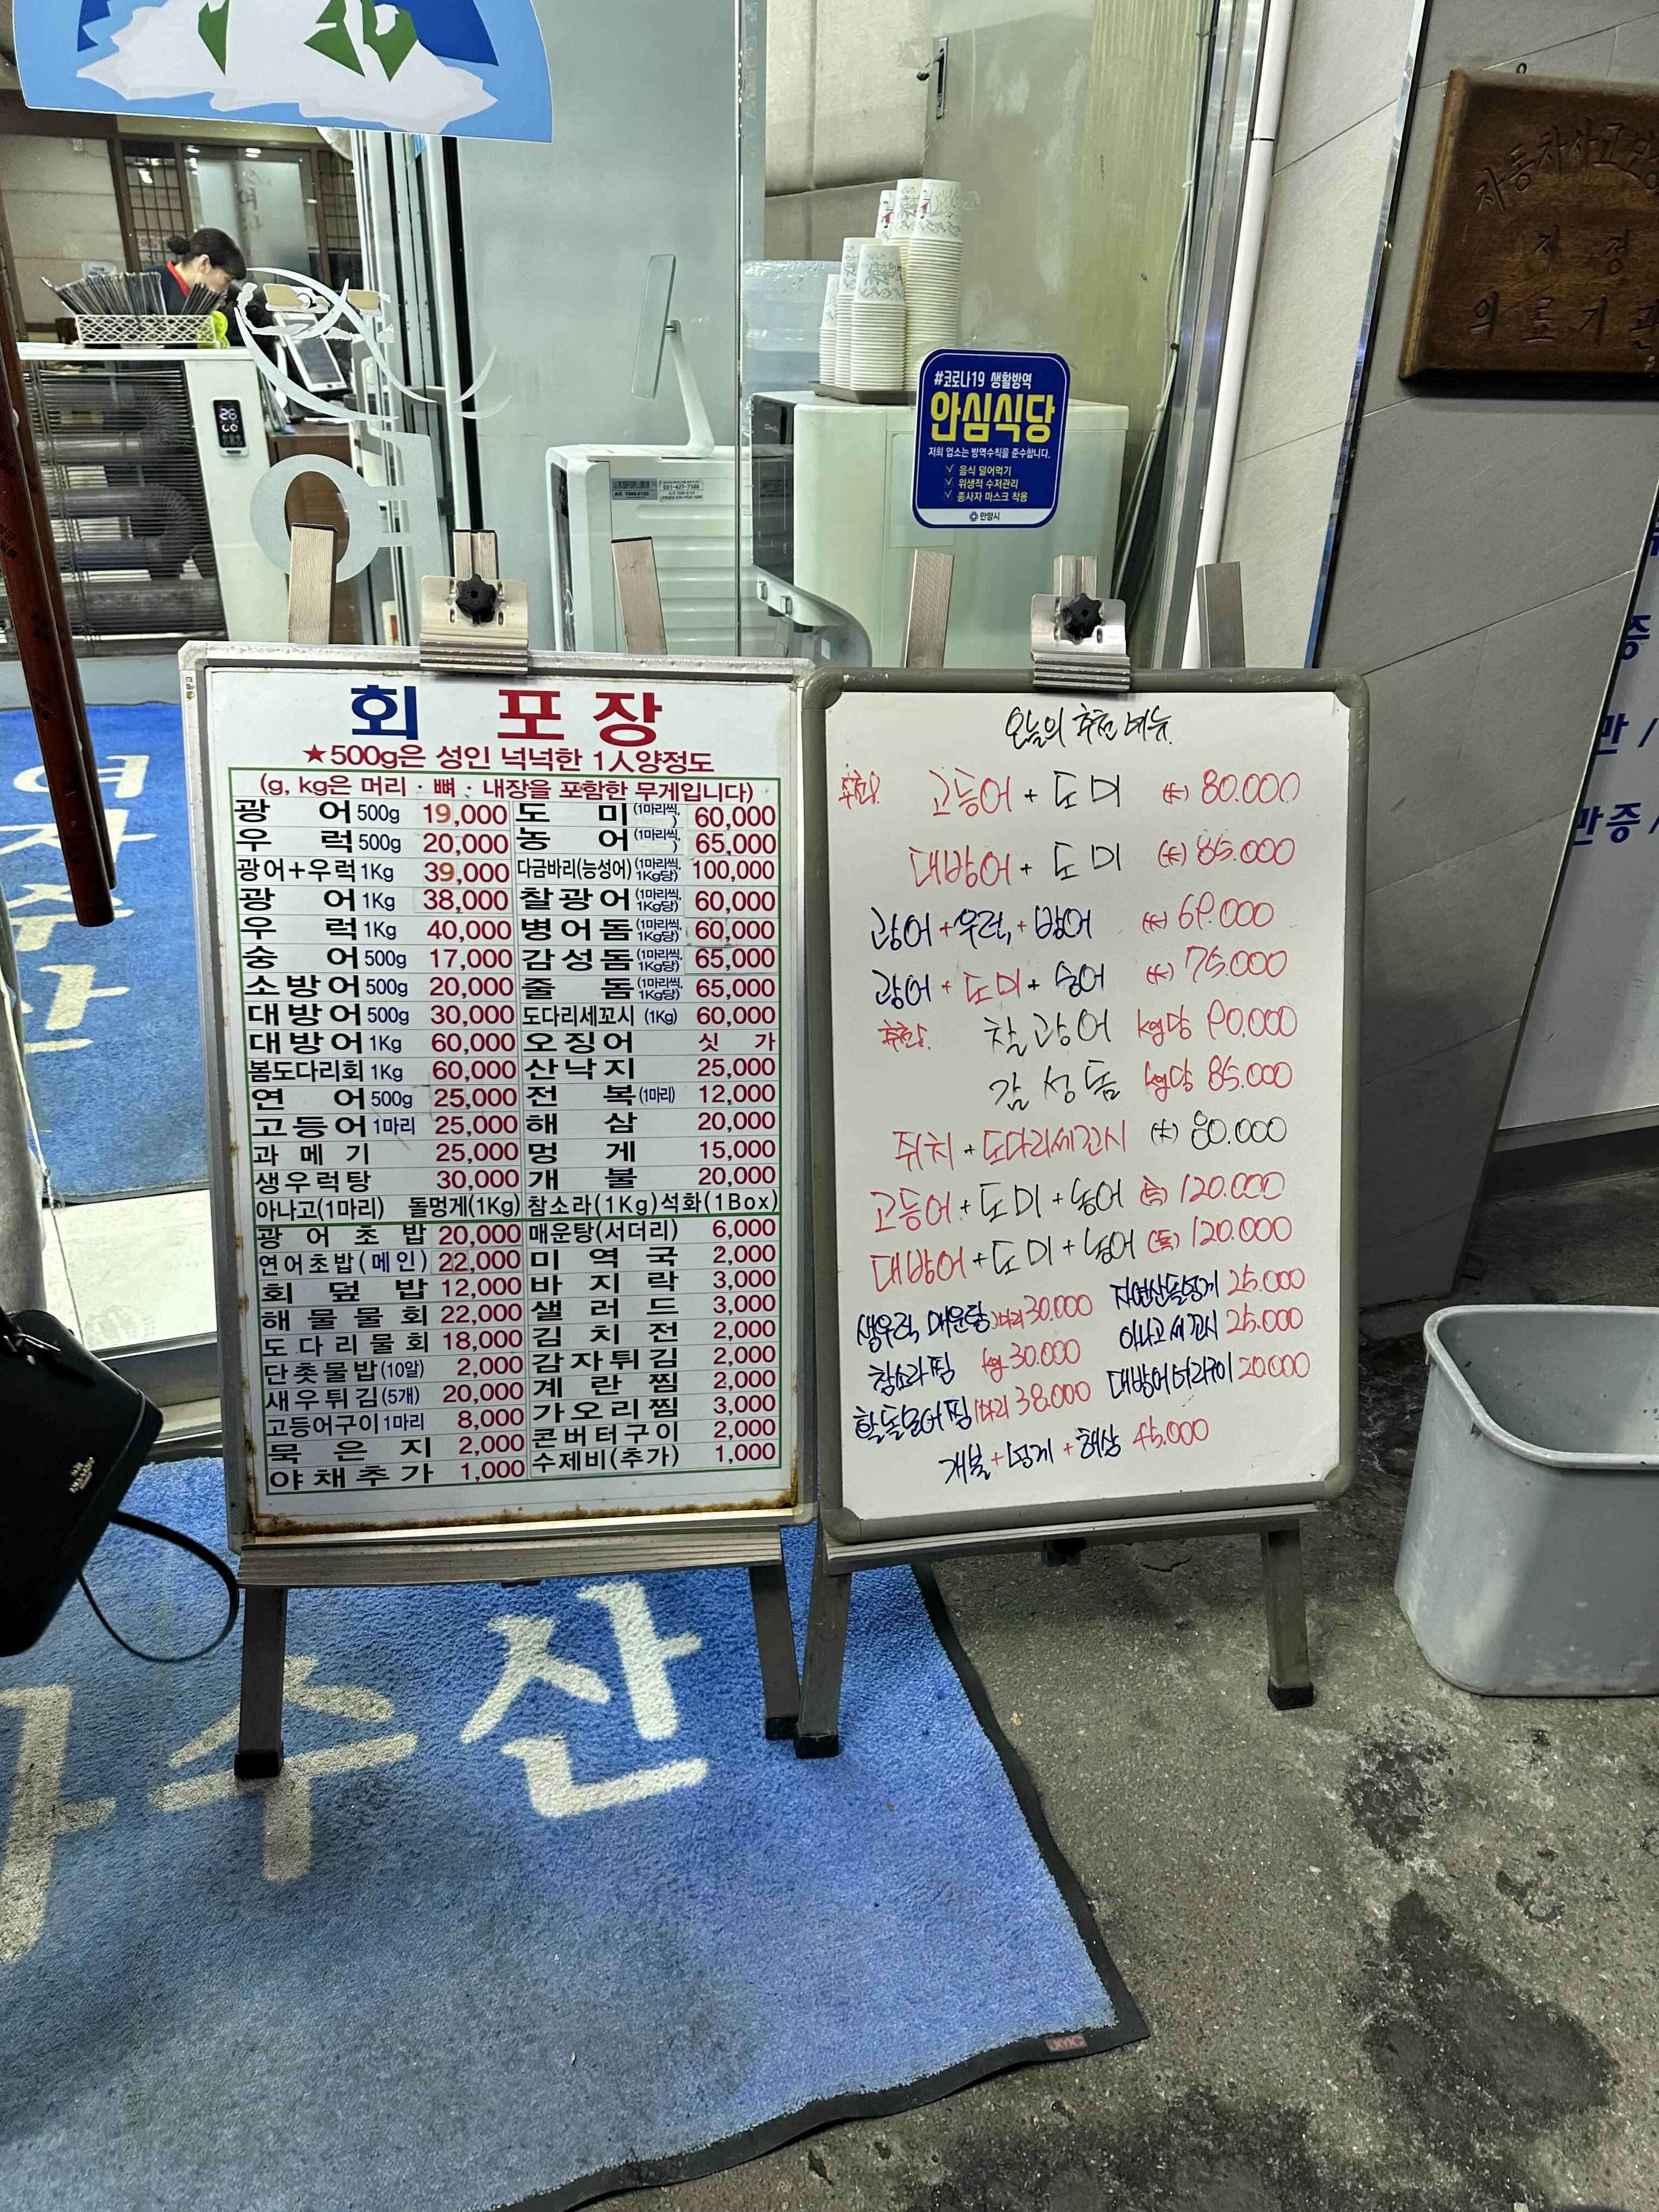 #코로나19 생활방역
안심식당
저희 업소는 방역수칙을 준수합니다.
음식 덜어먹기
위생적 수저관리
종사자 마스크 착용
안양시
자동차사고
지정
의료기관
회 포장
★500g은 성인 넉넉한 1人양정도
(g, kg은 머리 · 뼈 · 내장을 포함한 무게입니다)
광어 500g 19,000 도미 (1마리씩, ) 60,000
우럭 500g 20,000 농어 (1마리씩, ) 65,000
광어+우럭 1Kg 39,000 다금바리(능성어) (1마리씩, 1Kg당) 100,000
광어 1Kg 38,000 찰광어 (1마리씩, 1Kg당) 60,000
우럭 1Kg 40,000 병어돔 (1마리씩, 1Kg당) 60,000
숭어 500g 17,000 감성돔 (1마리씩, 1Kg당) 65,000
소방어 500g 20,000 줄돔 (1마리씩, 1Kg당) 65,000
대방어 500g 30,000 도다리세꼬시 (1Kg) 60,000
대방어 1Kg 60,000 오징어 싯가
봄도다리회 1Kg 60,000 산낙지 25,000
연어 500g 25,000 전복 (1마리) 12,000
고등어 1마리 25,000 해삼 20,000
과메기 25,000 멍게 15,000
생우럭탕 30,000 개불 20,000
아나고(1마리) 돌멍게(1Kg) 참소라(1Kg) 석화(1Box)
광어초밥 20,000 매운탕(서더리) 6,000
연어초밥(메인) 22,000 미역국 2,000
회덮밥 12,000 바지락 3,000
해물물회 22,000 샐러드 3,000
도다리물회 18,000 김치전 2,000
단촛물밥(10알) 2,000 감자튀김 2,000
새우튀김(5개) 20,000 계란찜 2,000
고등어구이 1마리 8,000 가오리찜 3,000
묵은지 2,000 콘버터구이 2,000
야채추가 1,000 수제비(추가) 1,000
오늘의 추천 메뉴
추천! 고등어 + 도미 (大) 80.000
대방어 + 도미 (大) 85.000
광어 + 우럭 + 방어 (大) 69.000
광어 + 도미 + 숭어 (大) 75.000
추천! 찰광어 kg당 90.000
감성돔 kg당 85.000
쥐치 + 도다리세꼬시 (大) 80.000
고등어 + 도미 + 농어 120.000
대방어 + 도미 + 농어 120.000
생우럭 매운탕 1마리 30.000 자연산돌멍게 25.000
참소라찜 kg 30.000 아나고세꼬시 25.000
활돌문어찜 1마리 38.000 대방어머리구이 20.000
개불 + 멍게 + 해삼 45.000
여자수산
수산